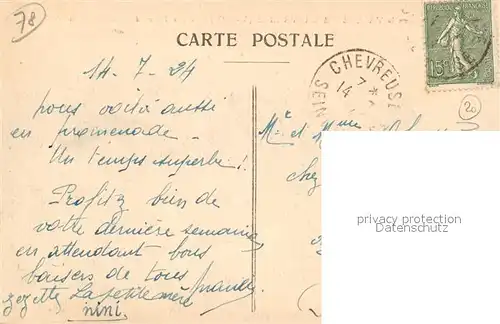 78
CARTE POSTALE
14-7-24
nous voilà aussi
en promenade.
Un temps superbe !
Profitez bien de
votre dernière semaine
en attendant bons
baisers de tous
zezette La petite mère
nini
CHEVREUSE
SEINE
7 *
14
REPUBLIQUE FRANÇAISE
15c
20
Mr et Mme
chez
privacy protection
Datenschutz